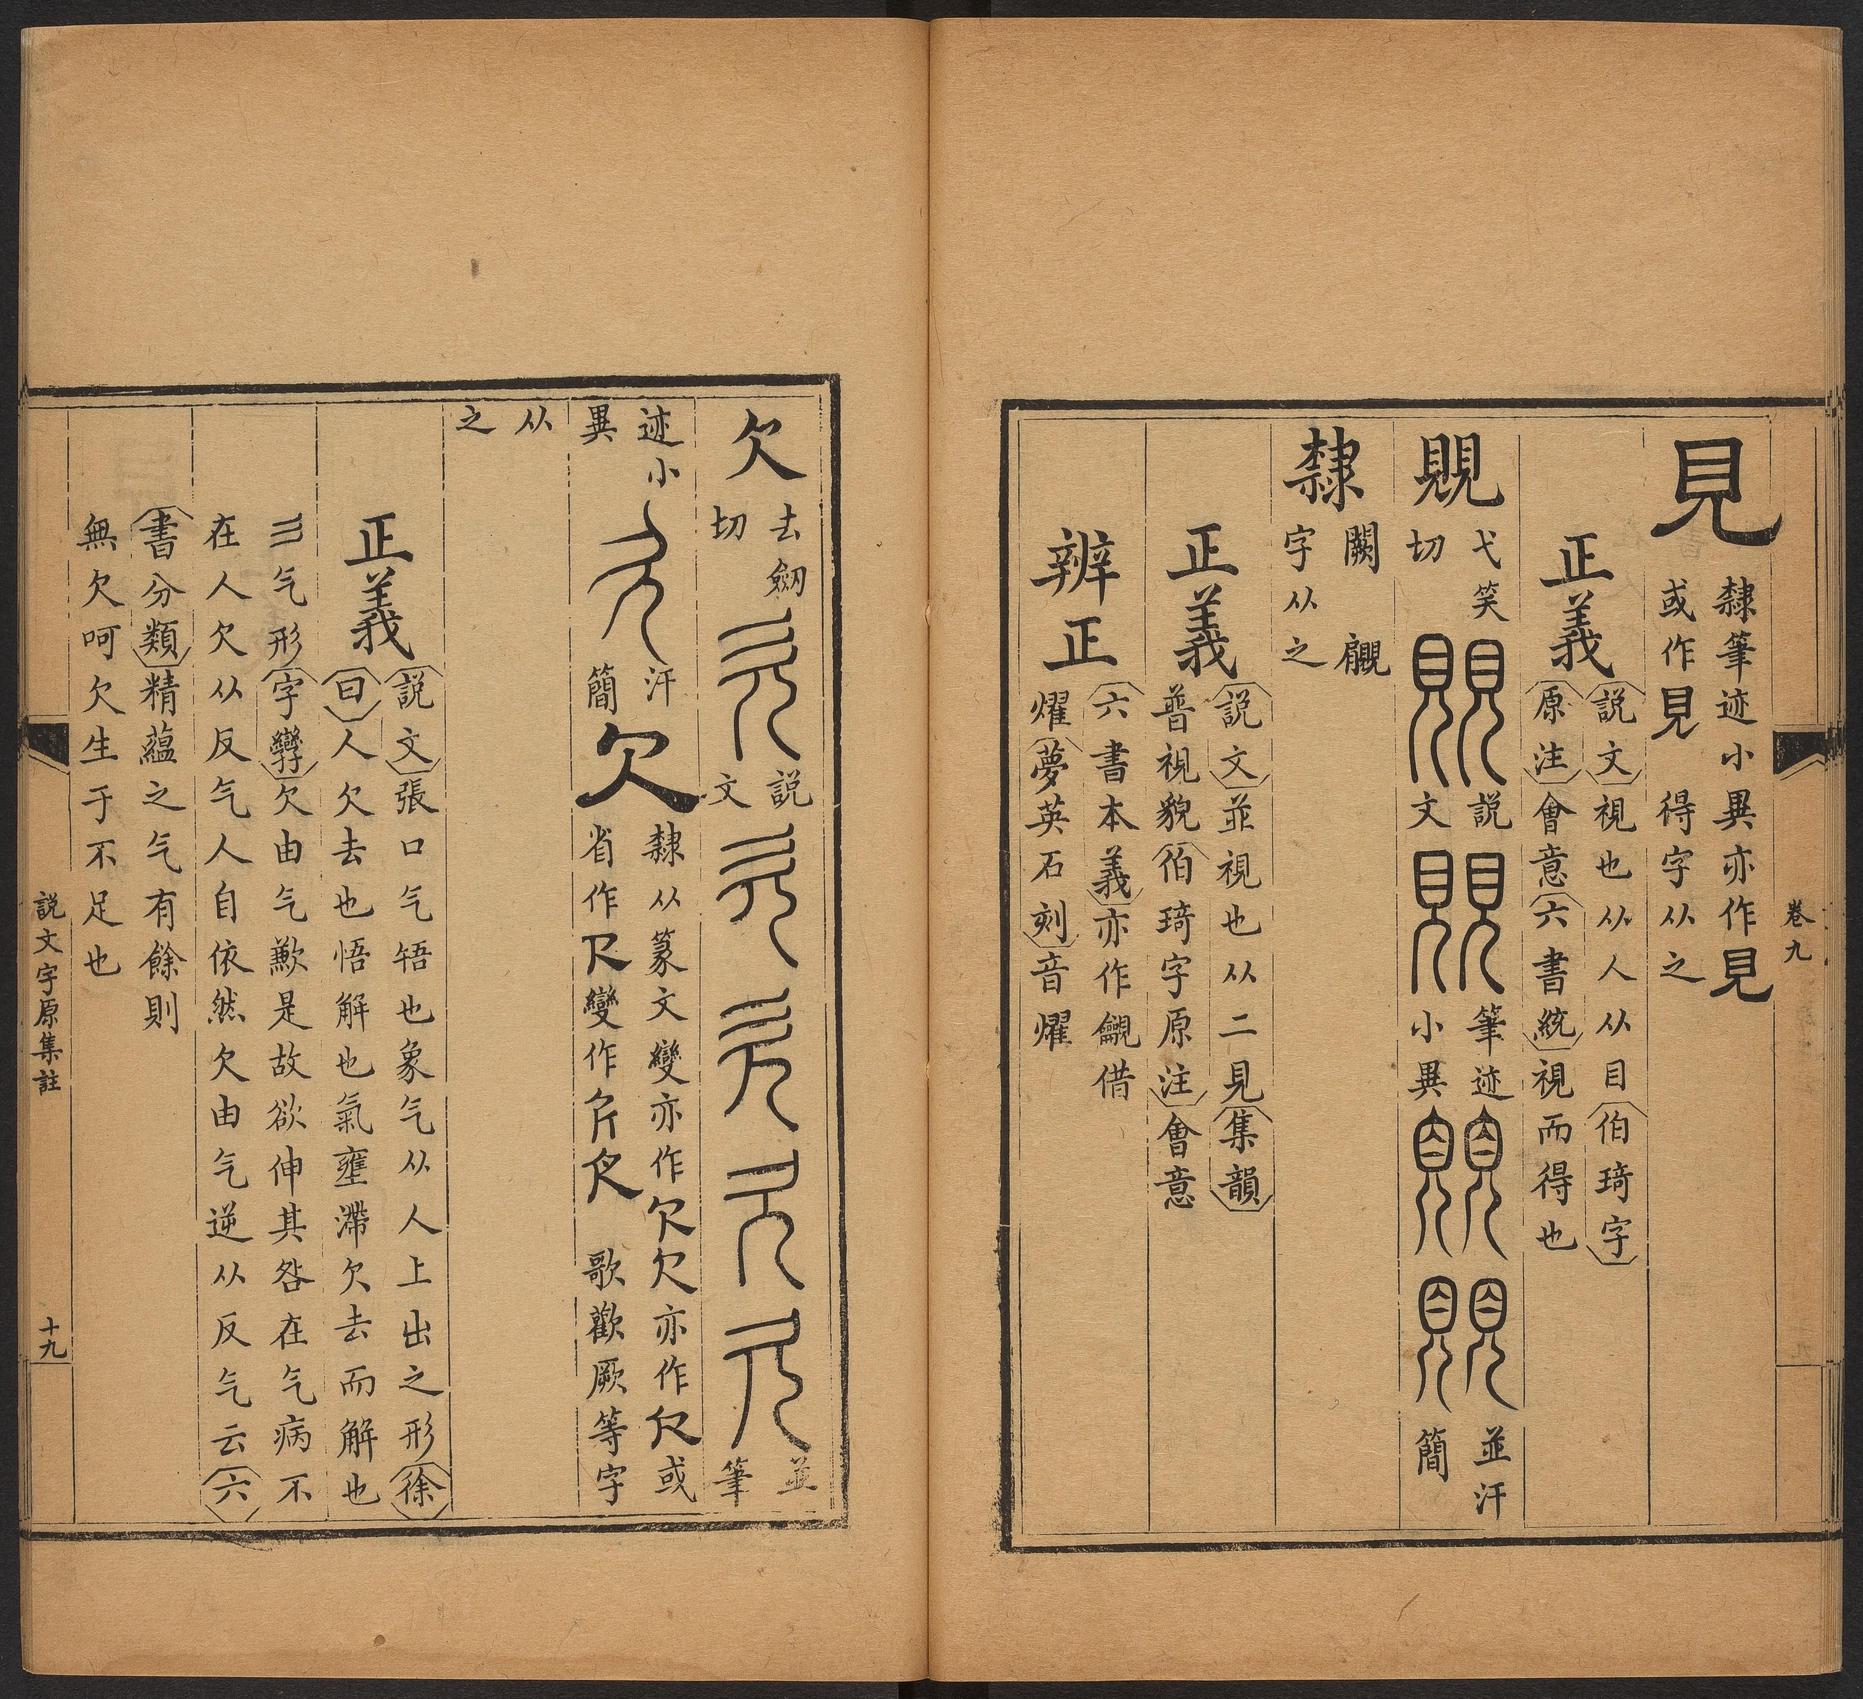 見
隸筆迹小異亦作見
或作見 得字从之
正義
說文視也从人从目伯琦字
原注會意六書統視而得也
覞
弋笑
切
說
文
筆迹
小異
並汗
簡
隸
闕 覵
字从之
正義
說文並視也从二見集韻
普視貌伯琦字原注會意
六書本義亦作龥借
辨正
燿夢英石刻音燿
卷九
欠
去劒
切
說
文
並
筆
迹小
異
汗
簡
欠
隸从篆文變亦作欠欠亦作
或
省作
變作
歌歡厥等字
从
之
正義
說文張口气啎也象气从人上出之形徐
曰人欠去也悟解也氣壅滯欠去而解也
彡气形字孿欠由气歉是故欲伸其咎在气病不
在人欠从反气人自依然欠由气逆从反气云六
書分類精蘊之气有餘則
無欠呵欠生于不足也
說文字原集註
十九